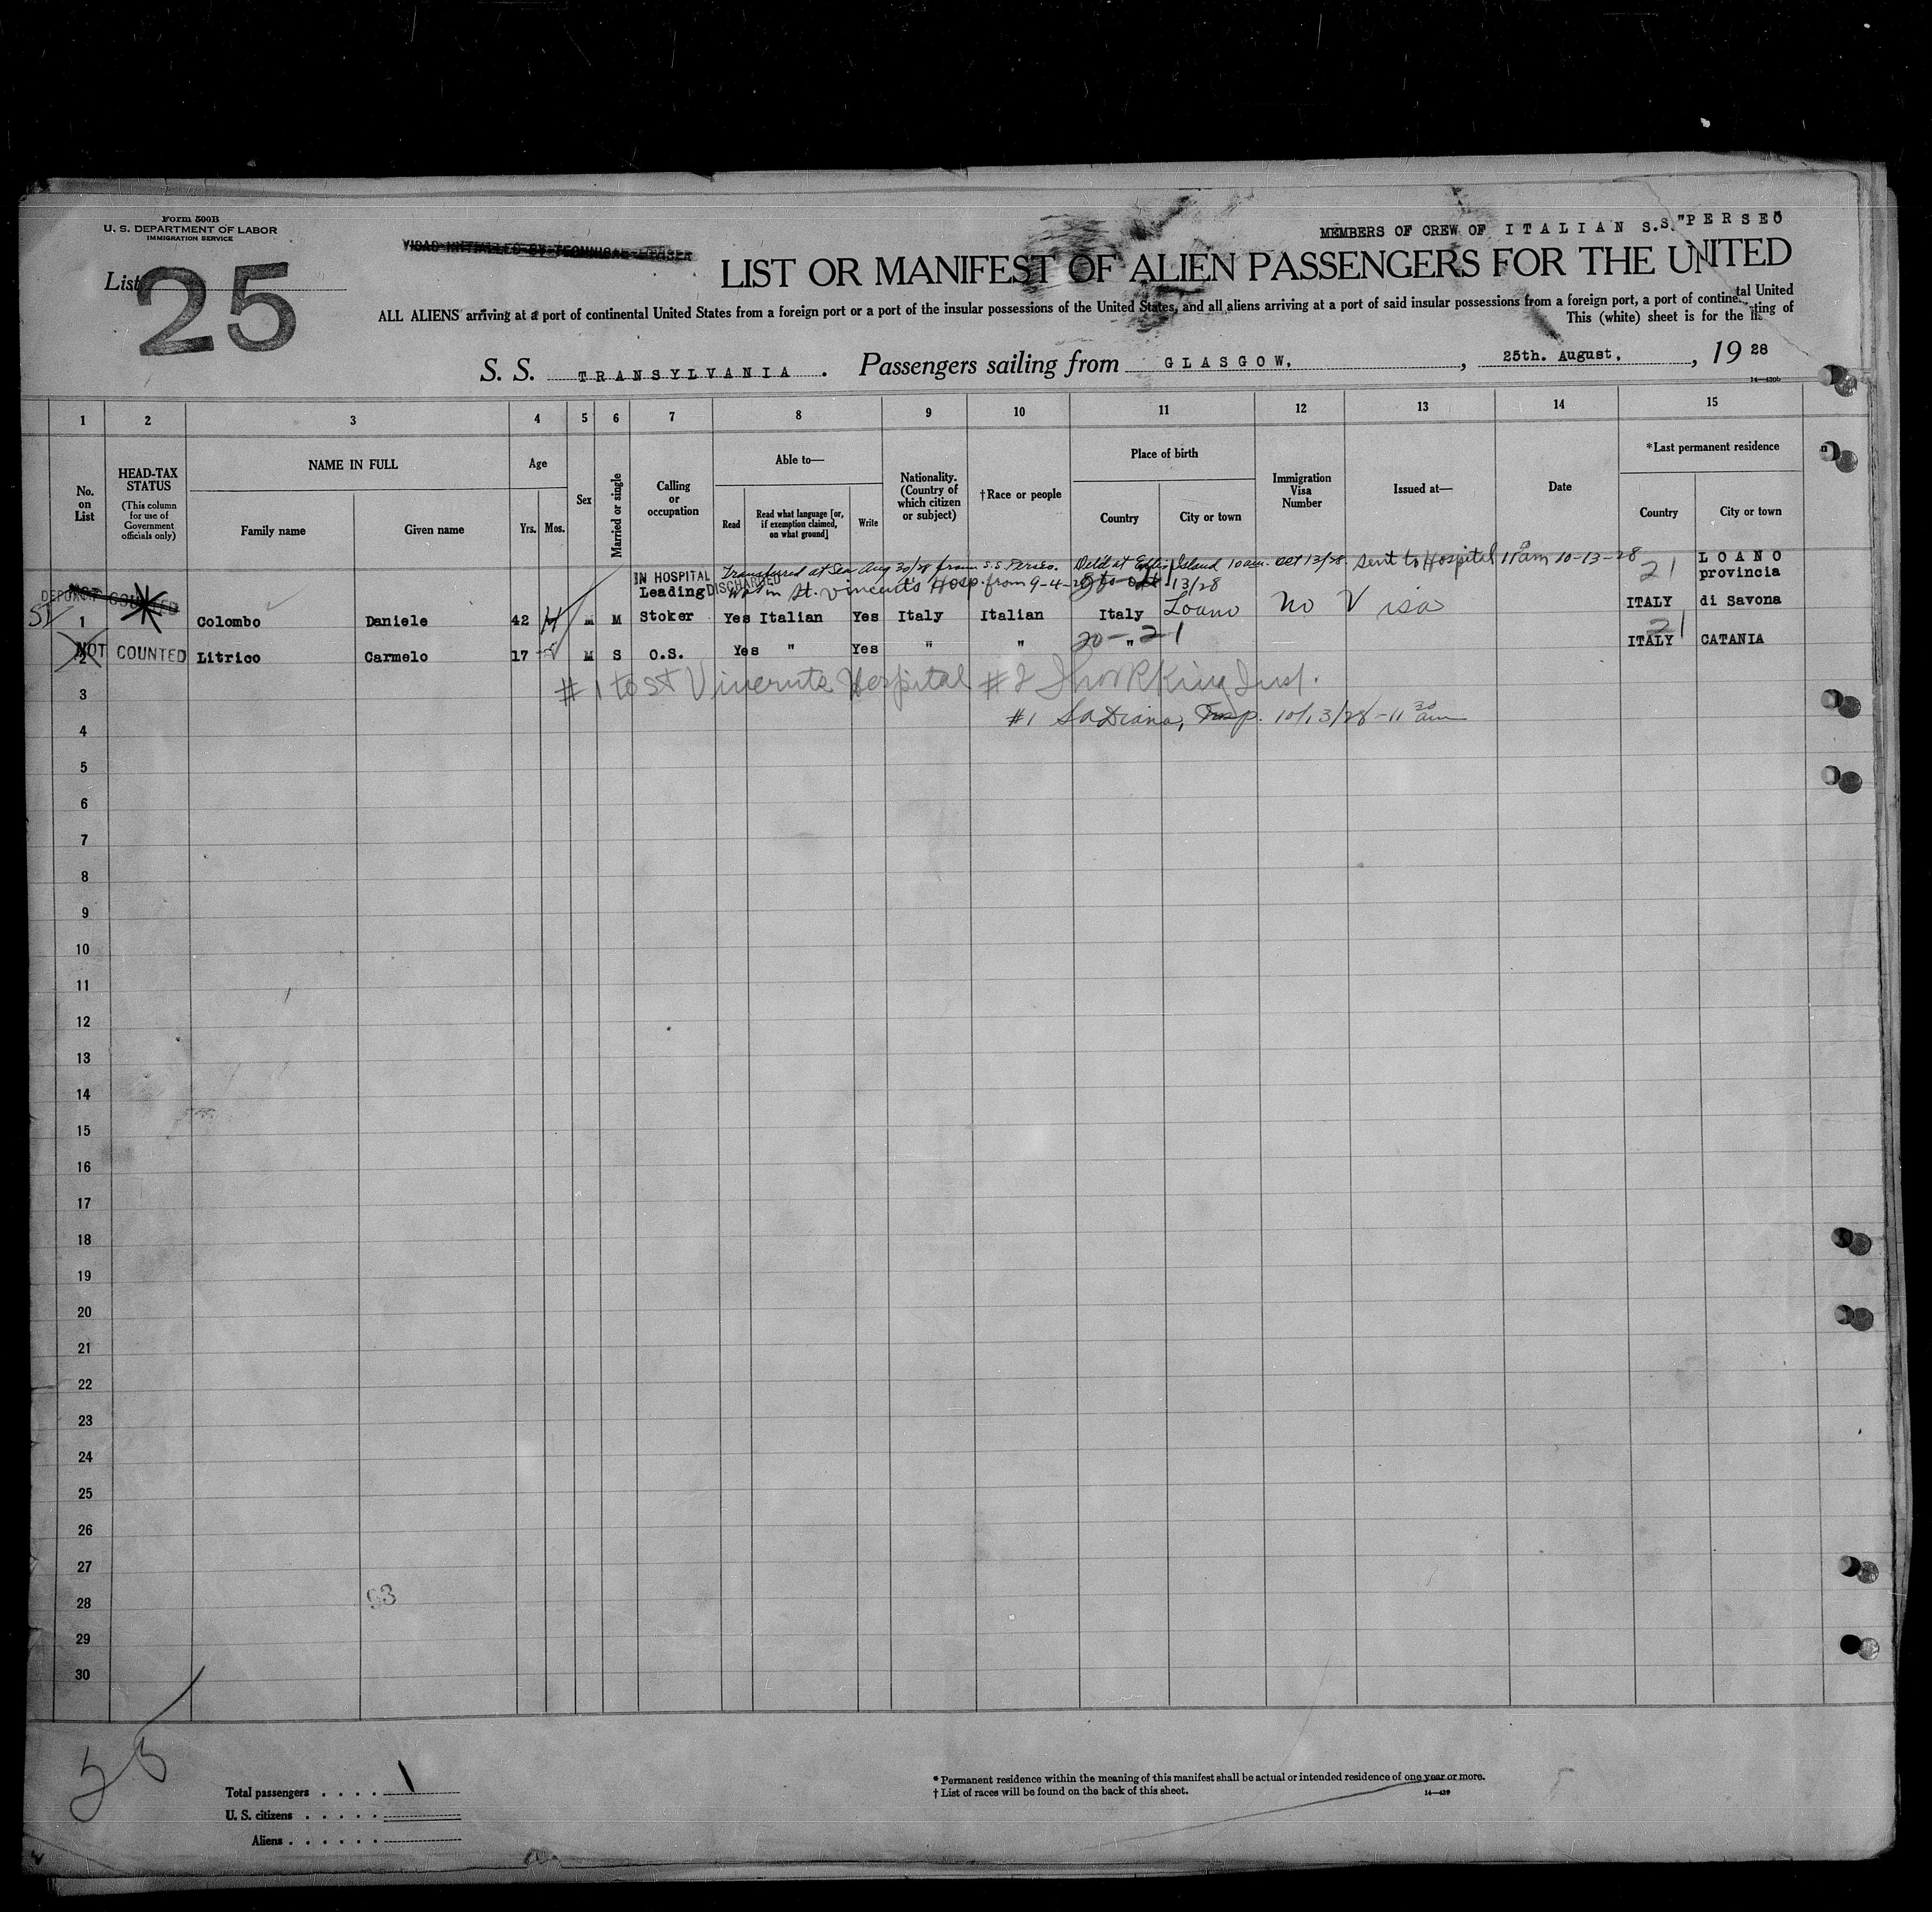 Form 500B
U. S. DEPARTMENT OF LABOR
IMMIGRATION SERVICE
MEMBERS OF CREW OF ITALIAN S.S. "PERSEO
List 25
LIST OR MANIFEST OF ALIEN PASSENGERS FOR THE UNITED
ALL ALIENS arriving at a port of continental United States from a foreign port or a port of the insular possessions of the United States, and all aliens arriving at a port of said insular possessions from a foreign port, a port of continental United
This (white) sheet is for the listing of
S. S. TRANSYLVANIA. Passengers sailing from GLASGOW, , 25th. August, , 19 28
14—430b
1 2 3 4 5 6 7 8 9 10 11 12 13 14 15
No. on List
HEAD-TAX STATUS
(This column for use of Government officials only)
NAME IN FULL
Family name
Given name
Age
Yrs. Mos.
Sex
Married or single
Calling or occupation
Able to—
Read
Read what language [or, if exemption claimed, on what ground]
Write
Nationality. (Country of which citizen or subject)
†Race or people
Place of birth
Country
City or town
Immigration Visa Number
Issued at—
Date
*Last permanent residence
Country
City or town
Transferred at Sea Aug 30/28 from S.S. Perseo. Held at Ellis Island 10 am. Oct 13/28. Sent to Hospital 11 am 10-13-28
IN HOSPITAL DISCHARGED
St. Vincent's Hosp. from 9-4-28 to Oct 13/28
21
LOANO
provincia
SI 1 Colombo Daniele 42 M M Leading Stoker Yes Italian Yes Italy Italian Italy Loano No Visa ITALY di Savona
20-21
21
NOT COUNTED 2 Litrico Carmelo 17 M S O.S. Yes " Yes " " " ITALY CATANIA
3
#1 to St Vincents Hospital #2
#1 10/13/28 - 11 30 am
4
5
6
7
8
9
10
11
12
13
14
15
16
17
18
19
20
21
22
23
24
25
26
27
28
93
29
30
Total passengers . . . . 1
U. S. citizens . . . . .
Aliens . . . . . .
* Permanent residence within the meaning of this manifest shall be actual or intended residence of one year or more.
† List of races will be found on the back of this sheet.
14—439